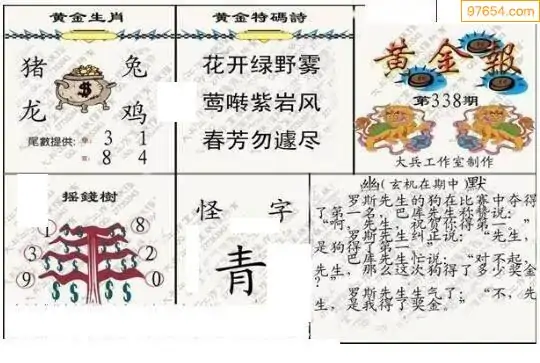 97654.com
黄金生肖
猪 兔
龙 鸡
尾數提供: 3 1
8 4
黄金特碼詩
花开绿野雾
莺啭紫岩风
春芳勿遽尽
黄金報
第338期
大兵工作室制作
摇錢樹
1 8
3 2
9 0
怪 字
青
幽(玄机在期中)默
罗斯先生的狗在比赛中夺得
了第一名，巴库先生称赞说：
“啊，先生，祝贺你得第一”
罗斯先生纠正说：“先生，
是狗得了第一”
巴库先生忙说：“对不起，
先生，那么这次狗得了多少奖金
？”
罗斯先生生气了：“不，先
生，是我得了奖金。”